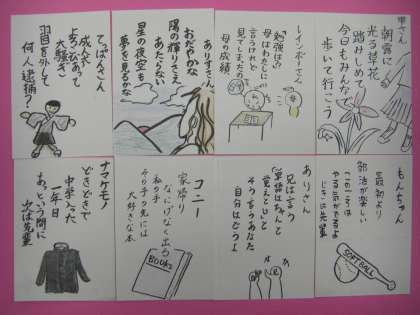 里さん
朝露に
光る草花
踏みしめて
今日もみんなで
歩いて行こう
レインボーさん
「勉強は？」
母はわたしに
言うけれど
見てしまったの
母の成績
ありすさん
おだやかな
陽の輝りさえ
あたらない
星の夜空も
夢を見るかな
てっぱんさん
成人式
よろこびあって
大騒ぎ
羽目を外して
何人逮捕？
もんちゃん
最初より
部活が楽しい
やる気がでるよ
先輩
SOFTBALL
ありさん
兄は言う
「単語はちゃんと
覚えてい」と
そう言うあなた
自分はどうよ
コニー
家帰り
なにげなく出る
私の手
その手の先には
大好きな本
BOOKS
ナマケモノ
どきどきで
中学入った
一年目
あっという間に
今は先輩